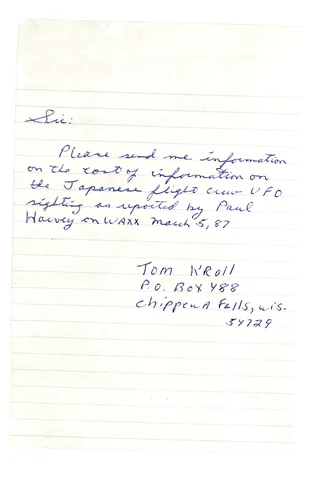 Sir:
Please send me information
on the cost of information on
the Japanese flight crew UFO
sighting as reported by Paul
Harvey on WAXX March 5, 87
Tom Kroll
P.O. Box 488
Chippewa Falls, Wis.
54729